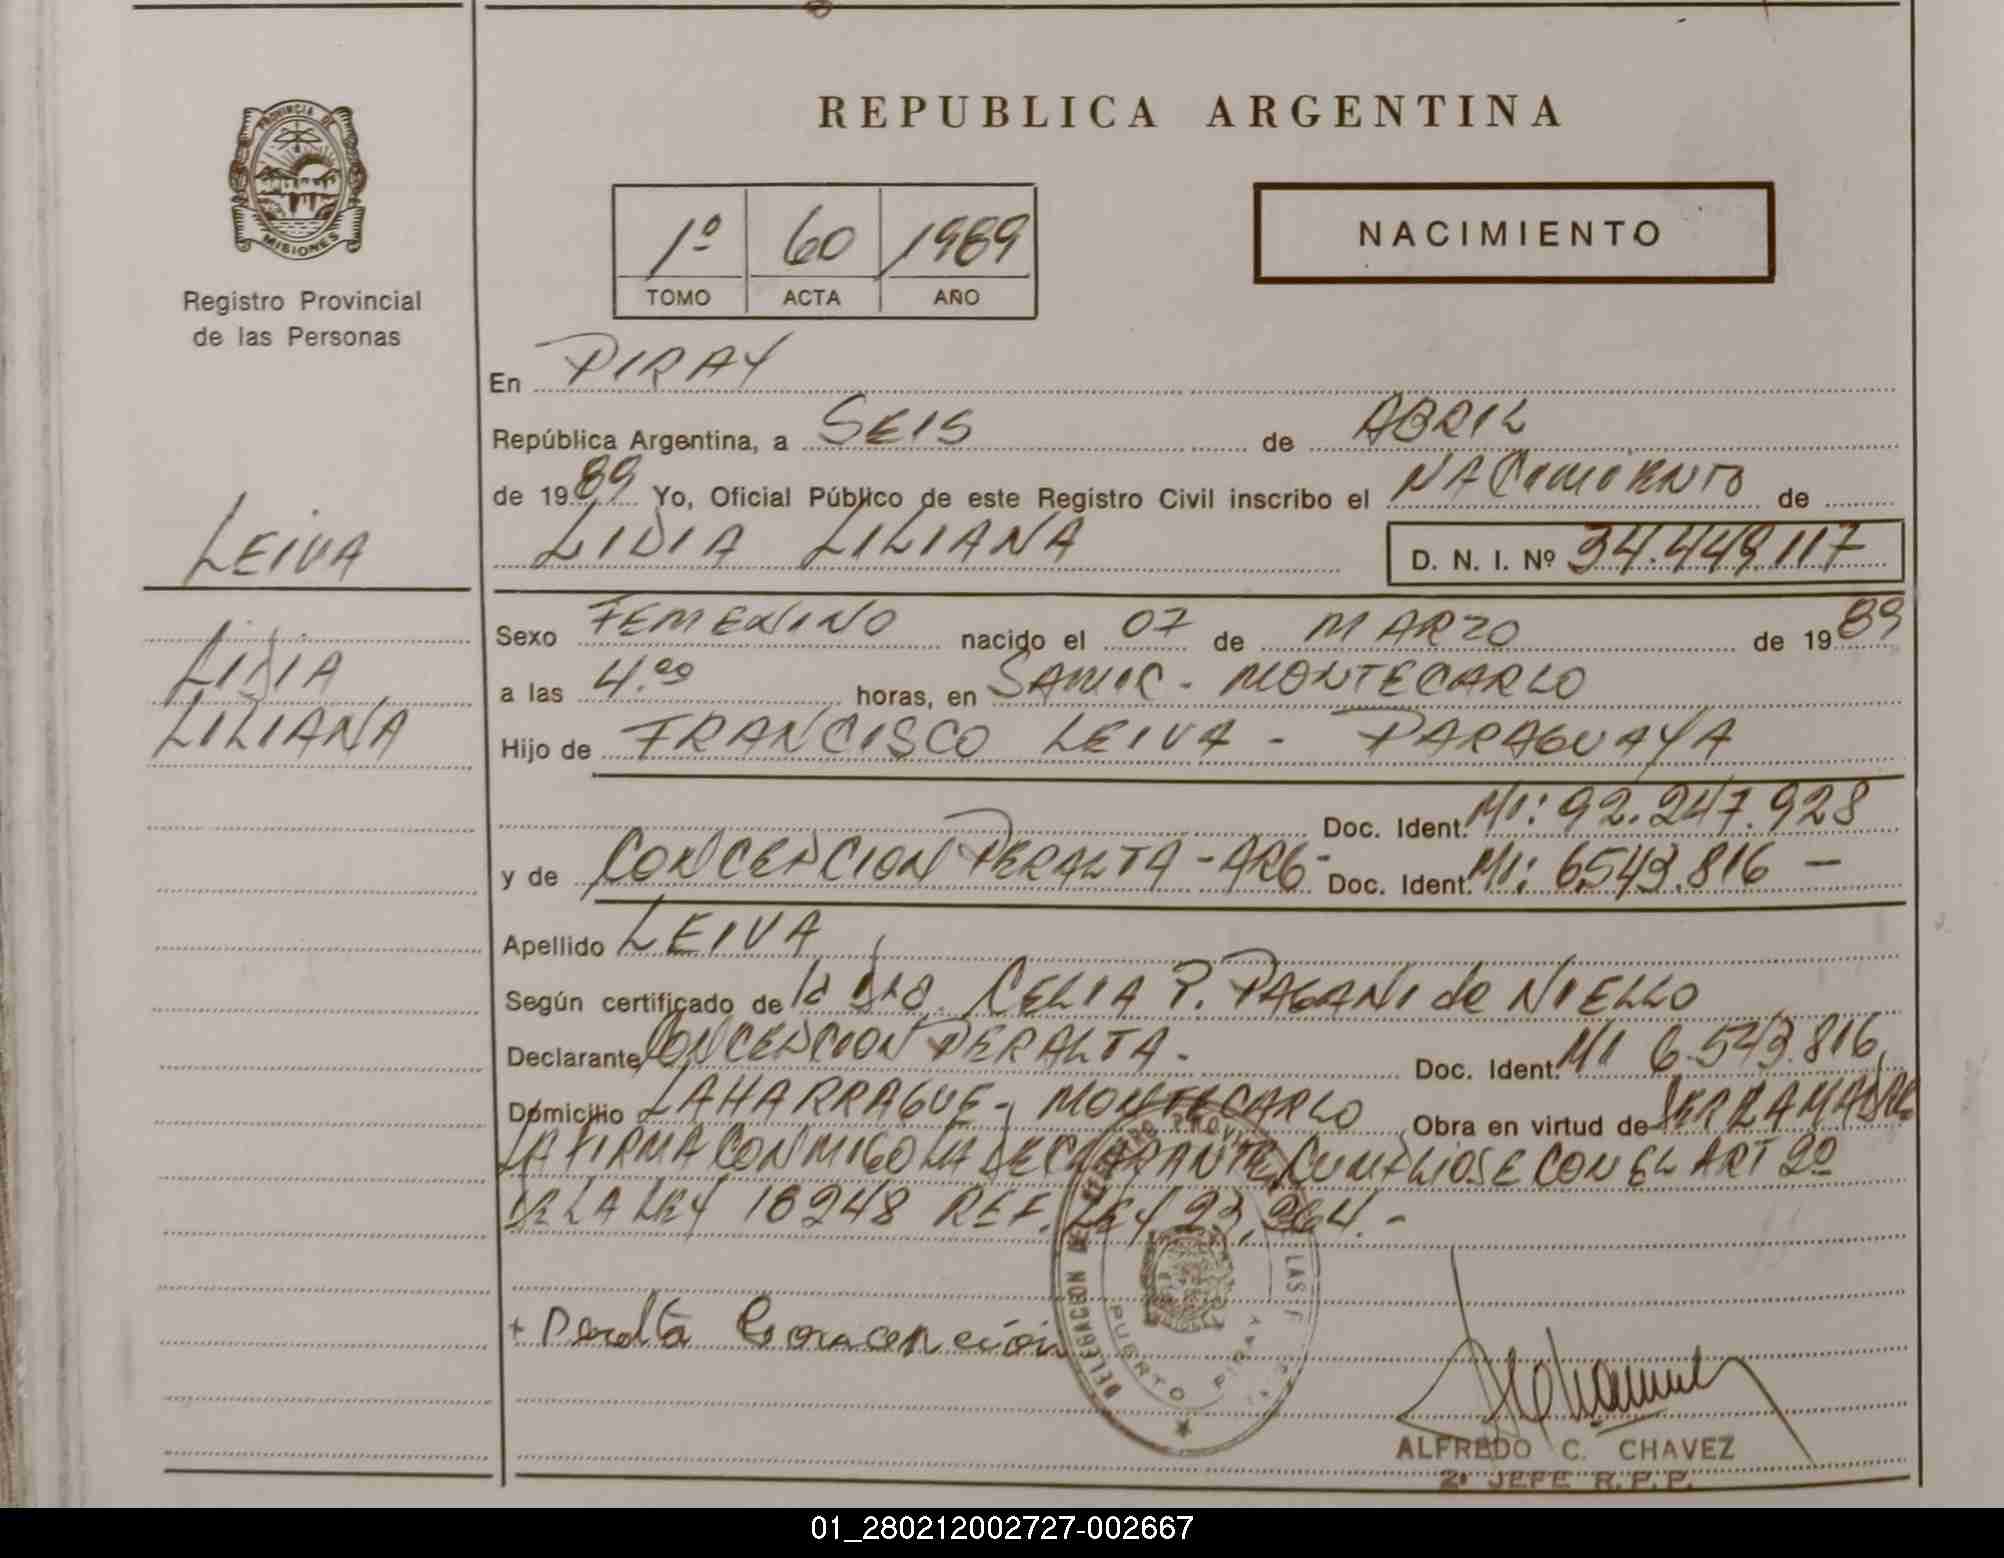 REPUBLICA ARGENTINA
PROVINCIA DE
MISIONES
Registro Provincial
de las Personas
1º 60 1989
TOMO ACTA AÑO
NACIMIENTO
En PIRAY
República Argentina, a SEIS de ABRIL
de 1989 Yo, Oficial Público de este Registro Civil inscribo el NACIMIENTO de
LIDIA LILIANA D. N. I. Nº 34.449.117
LEIVA
LIDIA
LILIANA
Sexo FEMENINO nacido el 07 de MARZO de 1989
a las 4.00 horas, en SAMIC - MONTECARLO
Hijo de FRANCISCO LEIVA - PARAGUAYA
Doc. Ident. MI: 92.247.928
y de CONCEPCION PERALTA - ARG - Doc. Ident. MI: 6.543.816 -
Apellido LEIVA
Según certificado de la Dra. CELIA P. PAGANI de NIELLO
Declarante CONCEPCION PERALTA. Doc. Ident. MI 6.543.816
Domicilio LAHARRAGUE - MONTECARLO Obra en virtud de SER LA MADRE
LA FIRMA CONMIGO LA DECLARANTE CUMPLIOSE CON EL ART 2º
DE LA LEY 18248 REF. LEY 23.264.-
+ Peralta Concepción
DELEGACION
LAS
PUERTO PIRAY
ALFREDO C. CHAVEZ
2º JEFE R.P.P.
01_280212002727-002667